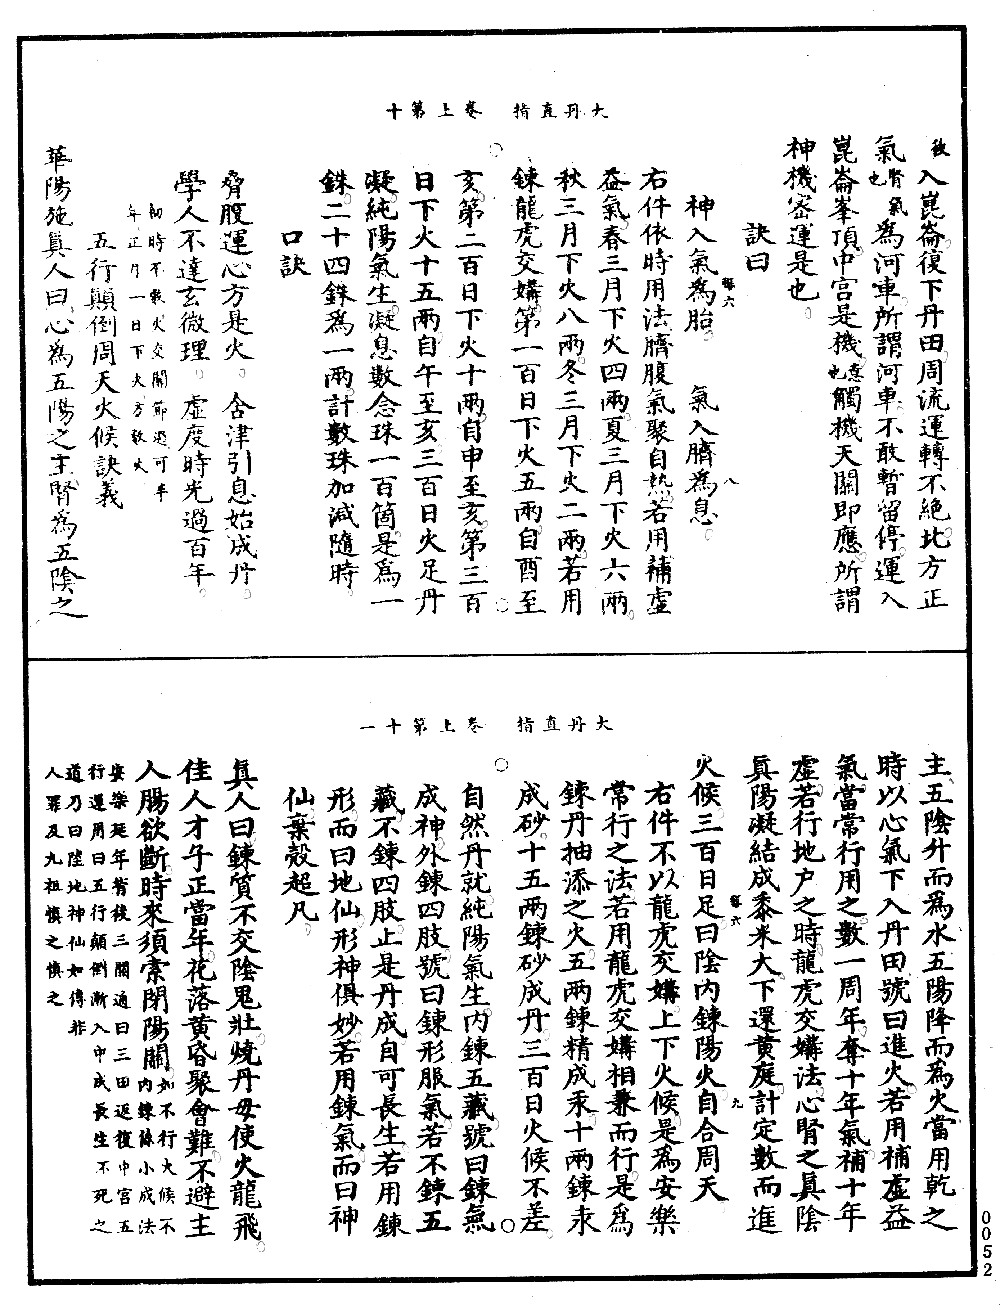 大丹直指　卷上第十
後入崑崙復下丹田周流運轉不絕北方正
氣腎氣也為河車所謂河車不敢暫留停運入
崑崙峯頂中宮是機意也觸機天關即應所謂
神機密運是也
訣曰
神入氣為胎　氣入臍為息
右件依時用法臍腹氣聚自熱若用補虛
益氣春三月下火四兩夏三月下火六兩
秋三月下火八兩冬三月下火二兩若用
鍊龍虎交媾第一百日下火五兩自酉至
亥第二百日下火十兩自申至亥第三百
日下火十五兩自午至亥三百日火足丹
凝純陽氣生凝息數念珠一百箇是為一
銖二十四銖為一兩計數珠加減隨時
口訣
脅腹運心方是火　含津引息始成丹
學人不達玄微理　虛度時光過百年
初時不數火交關節過可半
年正月一日下火方數火
五行顛倒周天火候訣義
華陽施真人曰心為五陽之主腎為五陰之
大丹直指　卷上第十一
主五陰升而為水五陽降而為火當用乾之
時以心氣下入丹田號曰進火若用補虛益
氣當常行用之數一周年奪十年氣補十年
虛若行地戶之時龍虎交媾法心腎之真陰
真陽凝結成黍米大下還黃庭計定數而進
火候三百日足曰陰內鍊陽火自合周天
右件不以龍虎交媾上下火候是為安樂
常行之法若用龍虎交媾相兼而行是為
鍊丹抽添之火五兩鍊精成汞十兩鍊汞
成砂十五兩鍊砂成丹三百日火候不差
自然丹就純陽氣生內鍊五藏號曰鍊氣
成神外鍊四肢號曰鍊形服氣若不鍊五
藏不鍊四肢止是丹成自可長生若用鍊
形而曰地仙形神俱妙若用鍊氣而曰神
仙棄殼超凡
真人曰鍊質不交陰鬼壯燒丹毋使火龍飛
佳人才子正當年花落黃昏聚會難不避主
人腸欲斷時來須索閉陽關如不行火候不內鍊係小成法
安樂延年背後三關通曰三田返復中宮五
行運用曰五行顛倒漸入中成長生不死之
道乃曰陸地神仙如傳非
人罪及九祖慎之慎之
0052